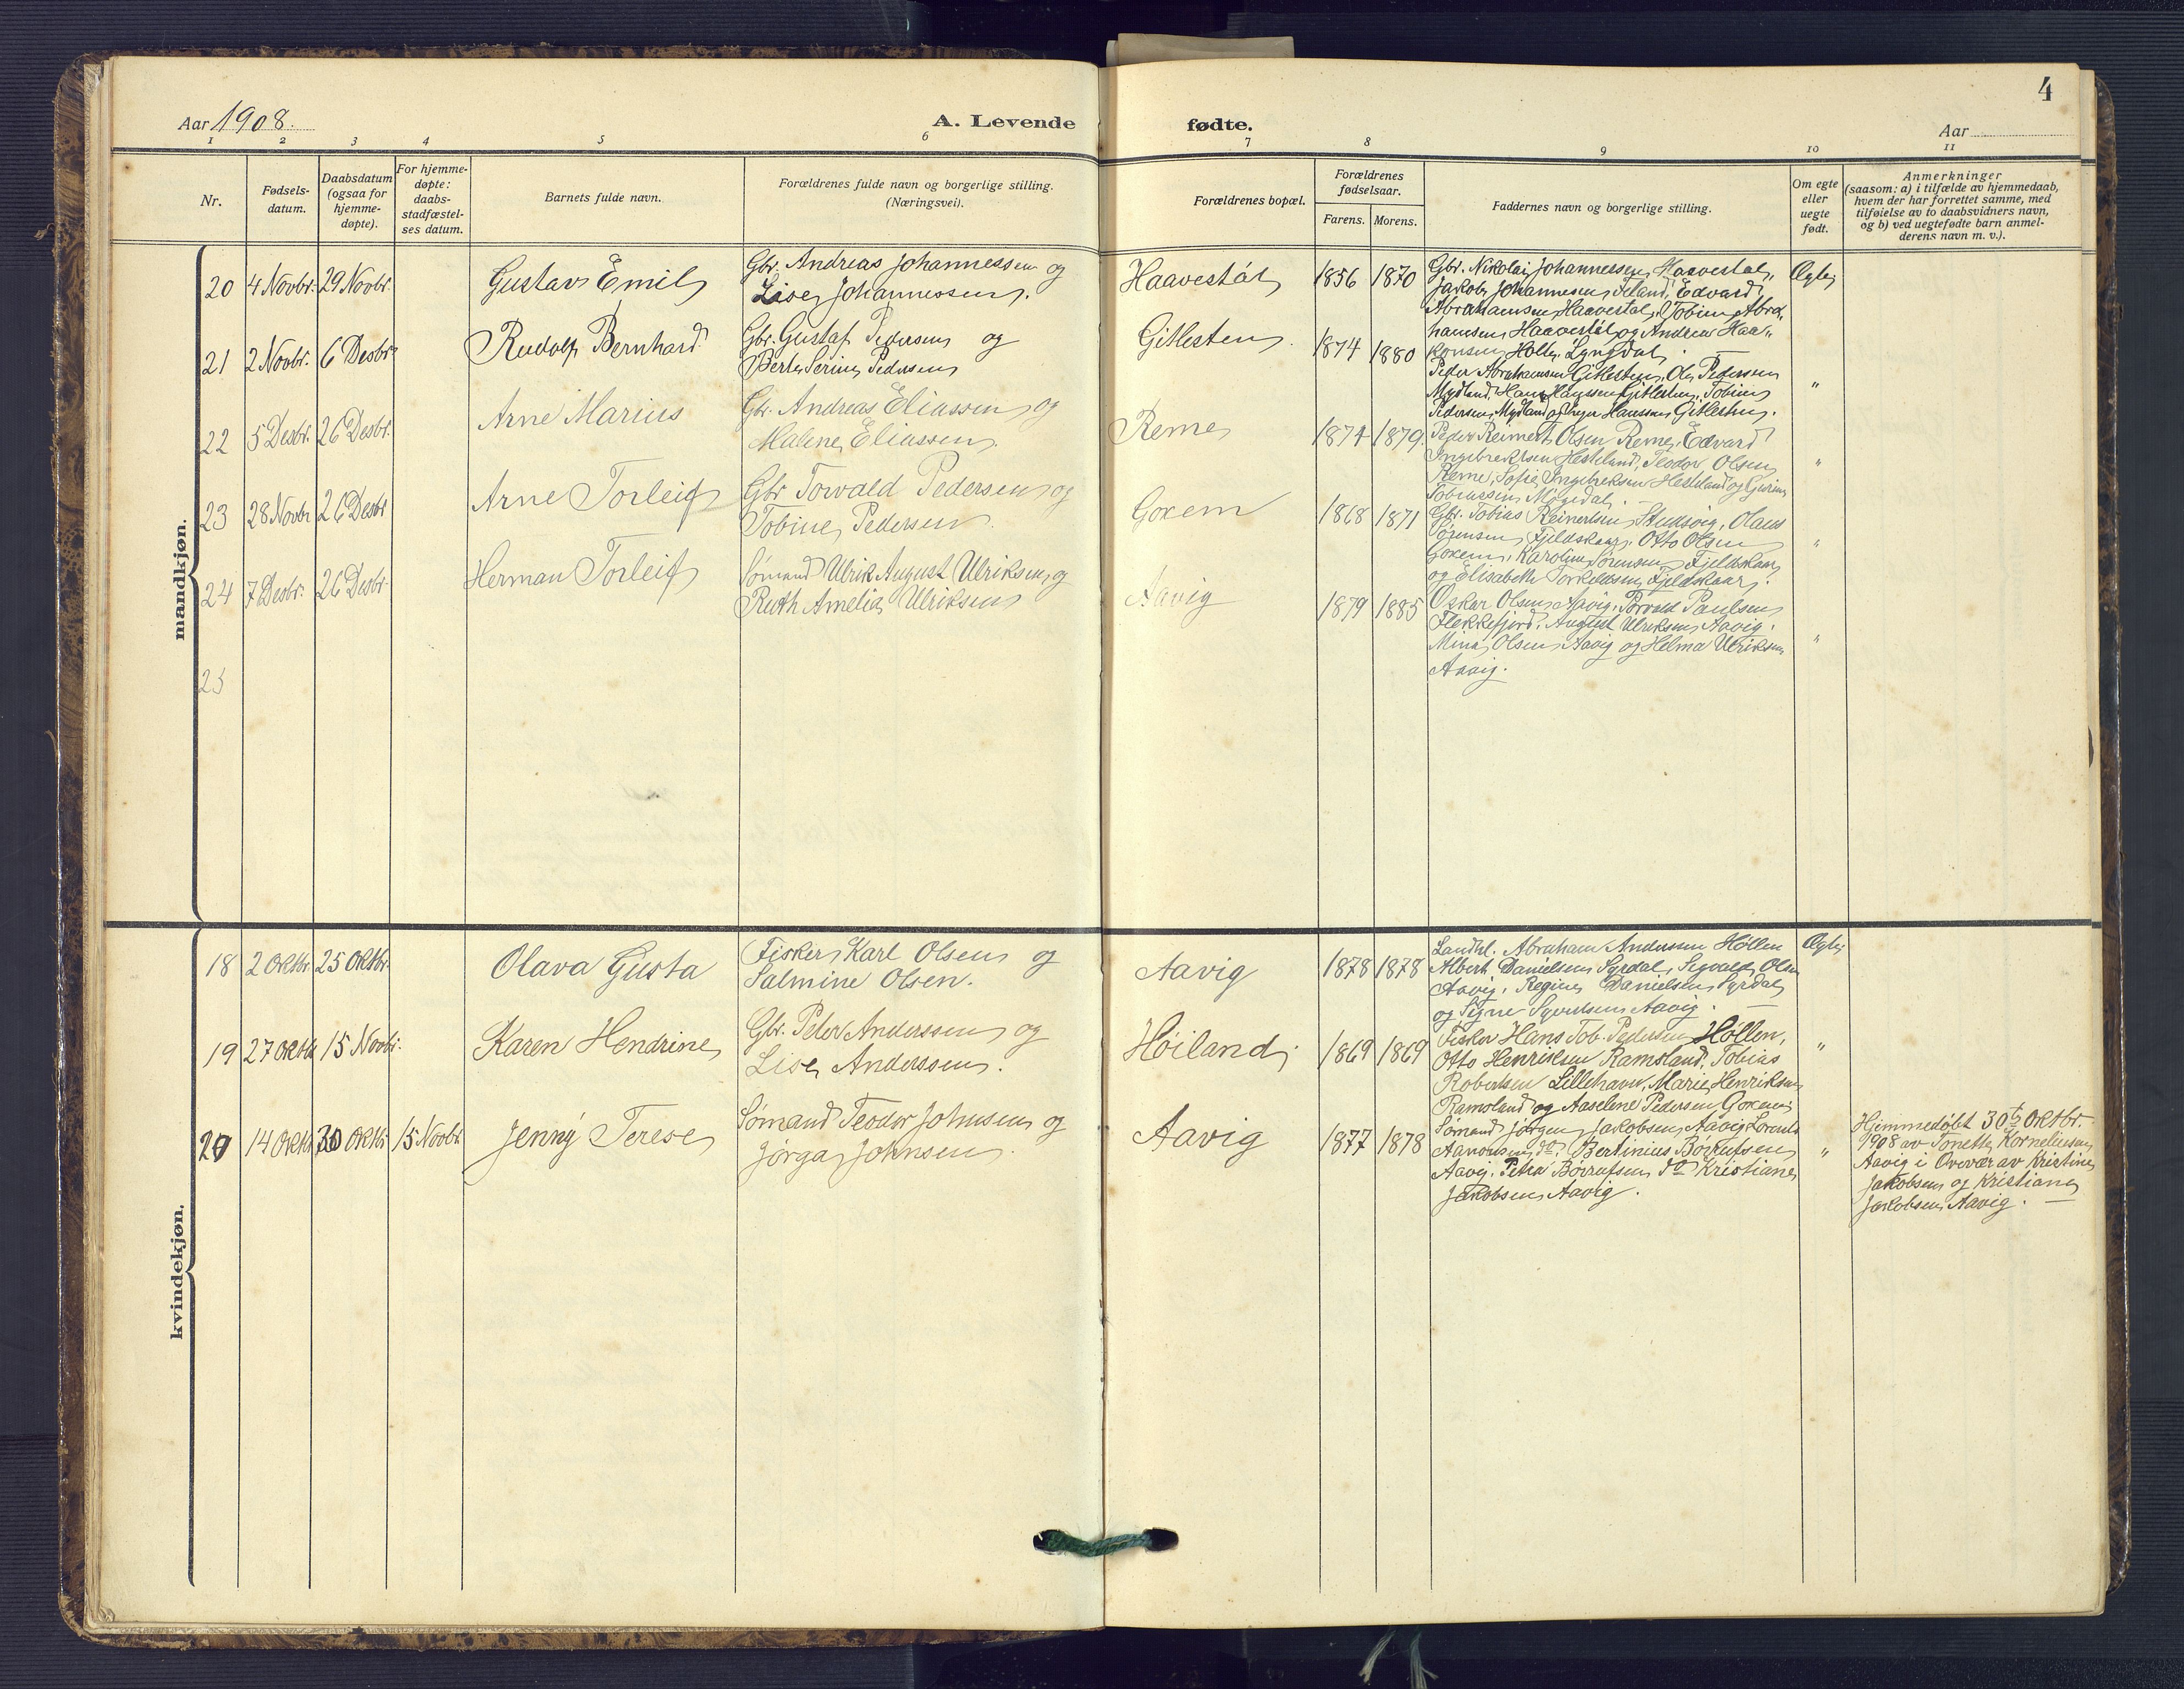 4
Aar 1908.
A. Levende fødte.
Aar
1 2 3 4 5 6 7 8 9 10 11
Nr.
Fødsels-
datum.
Daabsdatum
(ogsaa for
hjemme-
døpte).
For hjemme-
døpte:
daabs-
stadfæstel-
ses datum.
Barnets fulde navn.
Forældrenes fulde navn og borgerlige stilling.
(Næringsvei).
Forældrenes bopæl.
Forældrenes
fødselsaar.
Farens. Morens.
Faddernes navn og borgerlige stilling.
Om egte
eller
uegte
født.
Anmerkninger
(saasom: a) i tilfælde av hjemmedaab,
hvem der har forrettet samme, med
tilføielse av to daabsvidners navn,
og b) ved uegtefødte barn anmel-
derens navn m. v.).
mandkjøn.
20 4 Novbr. 29 Novbr. Gustav Emil
Gbr. Andreas Johannessen og
Lise Johannessen.
Haavestøl 1856 1870
Gbr. Nikolai Johannessen, Haavestøl,
Jakob Johannesen Feland, Edvard
Abrahamsen Haavestøl, Tobine Abra-
hamsen Haavestøl og Andrew Haa-
konsen Holte, Lyngdal.
Ægte
21 2 Novbr. 6 Desbr. Rudolf Bernhard
Gbr. Gustaf Pedersen og
Berte Serine Pedersen
Gitlesten. 1874 1880
Peder Abrahamsen Gitlesten, Ole Pedersen
Mydland, Hans Hanssen Gitlesten, Tobine
Pedersen Mydland og Inger Hanssen Gitlesten.
"
22 5 Desbr. 26 Desbr. Arne Marius
Gbr. Andreas Eliassen og
Malene Eliassen.
Reme 1874 1879
Peder Reimert Olsen Reme, Edvard
Ingebrektsen Hesteland, Teodor Olsen
Reme, Sofie Ingebreksen Hesteland og Gurine
Tobiassen Møgedal.
"
23 28 Novbr 26 Desbr Arne Torleif
Gbr Torvald Pedersen og
Tobine Pedersen.
Goxem 1868 1871
Gbr. Tobias Reinertsen, Studsvig, Olaus
Sørensen Fjeldskaar, Otto Olsen
Goxem, Karoline Sørensen Fjeldskaar
og Elisabeth Torkeldsen Fjeldskaar.
"
24 7 Desbr. 26 Desbr. Herman Torleif
Sømand Ulrik August Ulriksen og
Ruth Amelia Ulriksen
Aavig 1879 1885
Oskar Olsen Aavig, Torvald Paulsen
Flekkefjord, August Ulriksen Aavig.
Mina Olsen Aavig og Helma Ulriksen
Aavig.
"
25
kvindekjøn.
18 2 Oktbr. 25 Oktbr. Olava Gusta
Fisker Karl Olsen og
Salmine Olsen.
Aavig 1878 1878
Landhl. Abraham Anderssen Høllen
Albert Danielsen Syrdal, Sigvald Olsen
Aavig, Regine Danielsen Syrdal
og Signe Syvertsen Aavig.
Ægte
19 27 Oktbr 15 Novbr. Karen Hendrine
Gbr. Peder Anderssen og
Lise Anderssen.
Høiland. 1869 1869
Fisker Hans Tob. Pedersen Høllen,
Otto Henriksen Ramsland, Tobias
Robertsen Lillehavn, Marie Henriksen
Ramsland og Aaselene Pedersen Goxem
"
20 14 Oktbr 30 Oktbr 15 Novbr. Jenny Terese
Sømand Teodor Johnsen og
Jørga Johnsen.
Aavig 1877 1878
Sømand Jørgen Jakobsen, Aavig,
Aanonsen do. Bertinius Børrufsen
Aavig, Petra Børrufsen do Kristiane
Jakobsen Aavig.
"
Hjemmedøbt 30te Oktbr.
1908 av Tonette Korneliusen
Aavig i Overvær av Kristine
Jakobsen og Kristiane
Jakobsen, Aavig.